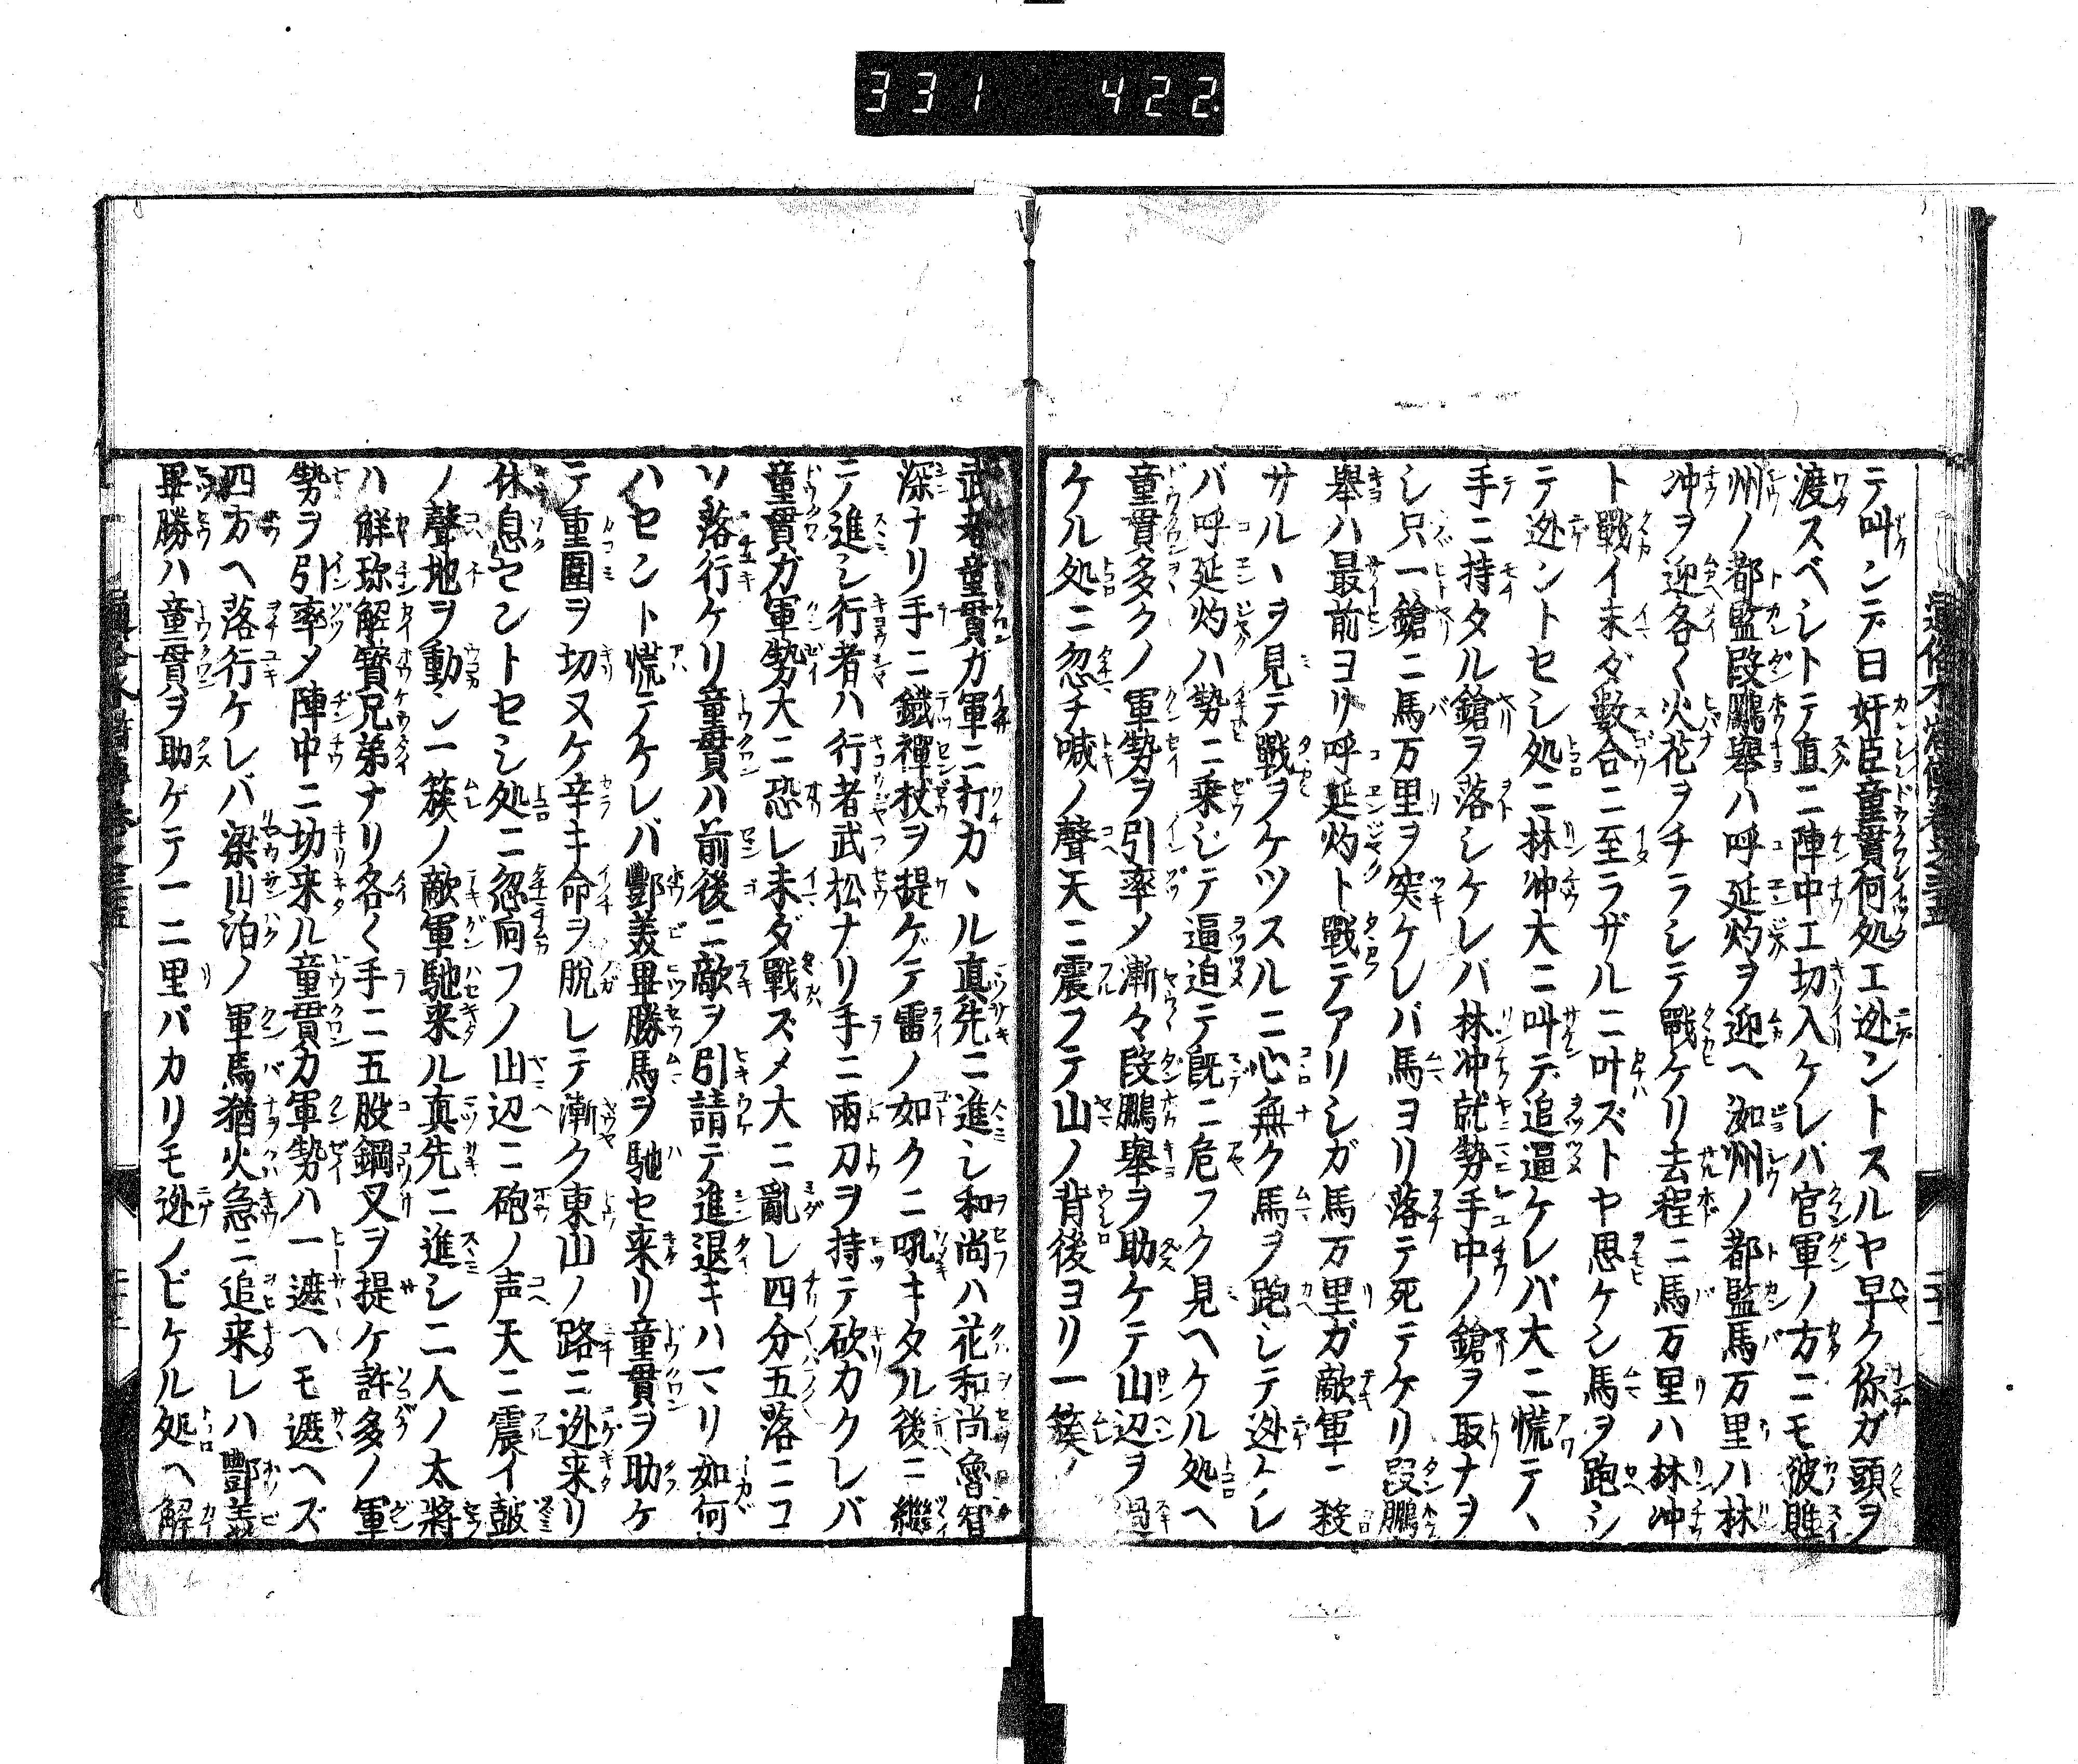 331 422
テ叫ンデ曰奸臣童貫何処エ迯ントスルヤ早ク你ガ頭ヲ
渡スベシトテ直ニ陣中エ切入ケレバ官軍ノ方ニモ彼睢
州ノ都監段鵬舉ハ呼延灼ヲ迎ヘ洳州ノ都監馬万里ハ林
冲ヲ迎各〱火花ヲチラシテ戰ケリ去程ニ馬万里ハ林冲
ト戰イ末ダ數合ニ至ラザルニ叶ズトヤ思ケン馬ヲ跑シ
テ迯ントセシ処ニ林冲大ニ叫デ追逼ケレバ大ニ慌テヽ
手ニ持タル鎗ヲ落シケレバ林冲就勢手中ノ鎗ヲ取ナヲ
シ只一鎗ニ馬万里ヲ突ケレバ馬ヨリ落テ死テケリ段鵬
舉ハ最前ヨリ呼延灼ト戰テアリシガ馬万里ガ敵軍ニ殺
サルヽヲ見テ戰ヲケツスルニ心無ク馬ヲ跑シテ迯ケレ
バ呼延灼ハ勢ニ乗ジテ逼迫テ既ニ危フク見ヘケル処ヘ
童貫多クノ軍勢ヲ引率メ漸々段鵬舉ヲ助ケテ山辺ヲ過
ケル処ニ忽チ喊ノ聲天ニ震フテ山ノ背後ヨリ一簇ノ
武者童貫ガ軍ニ打カヽル真先ニ進シ和尚ハ花和尚魯智
深ナリ手ニ鐵禪杖ヲ提ゲテ雷ノ如クニ吼キタル後ニ繼
テ進シ行者ハ行者武松ナリ手ニ兩刀ヲ持テ砍カクレバ
童貫ガ軍勢大ニ恐レ未ダ戰ズメ大ニ亂レ四分五落ニコ
ソ落行ケリ童貫ハ前後ニ敵ヲ引請テ進退キハマリ如何
ハセント慌テケレバ酆美畢勝馬ヲ馳セ来リ童貫ヲ助ケ
テ重圍ヲ切ヌケ辛キ命ヲ脱レテ漸ク東山ノ路ニ迯来リ
休息セントセシ処ニ忽向フノ山辺ニ砲ノ声天ニ震イ皷
ノ聲地ヲ動シ一簇ノ敵軍馳来ル真先ニ進シ二人ノ太將
ハ觧珎解寳兄弟ナリ各〱手ニ五股鋼叉ヲ提ケ許多ノ軍
勢ヲ引率メ陣中ニ切来ル童貫カ軍勢ハ一遮ヘモ遮ヘズ
四方ヘ落行ケレバ梁山泊ノ軍馬猶火急ニ追来レハ酆美
畢勝ハ童貫ヲ助ケテ一二里バカリモ迯ノビケル処ヘ解